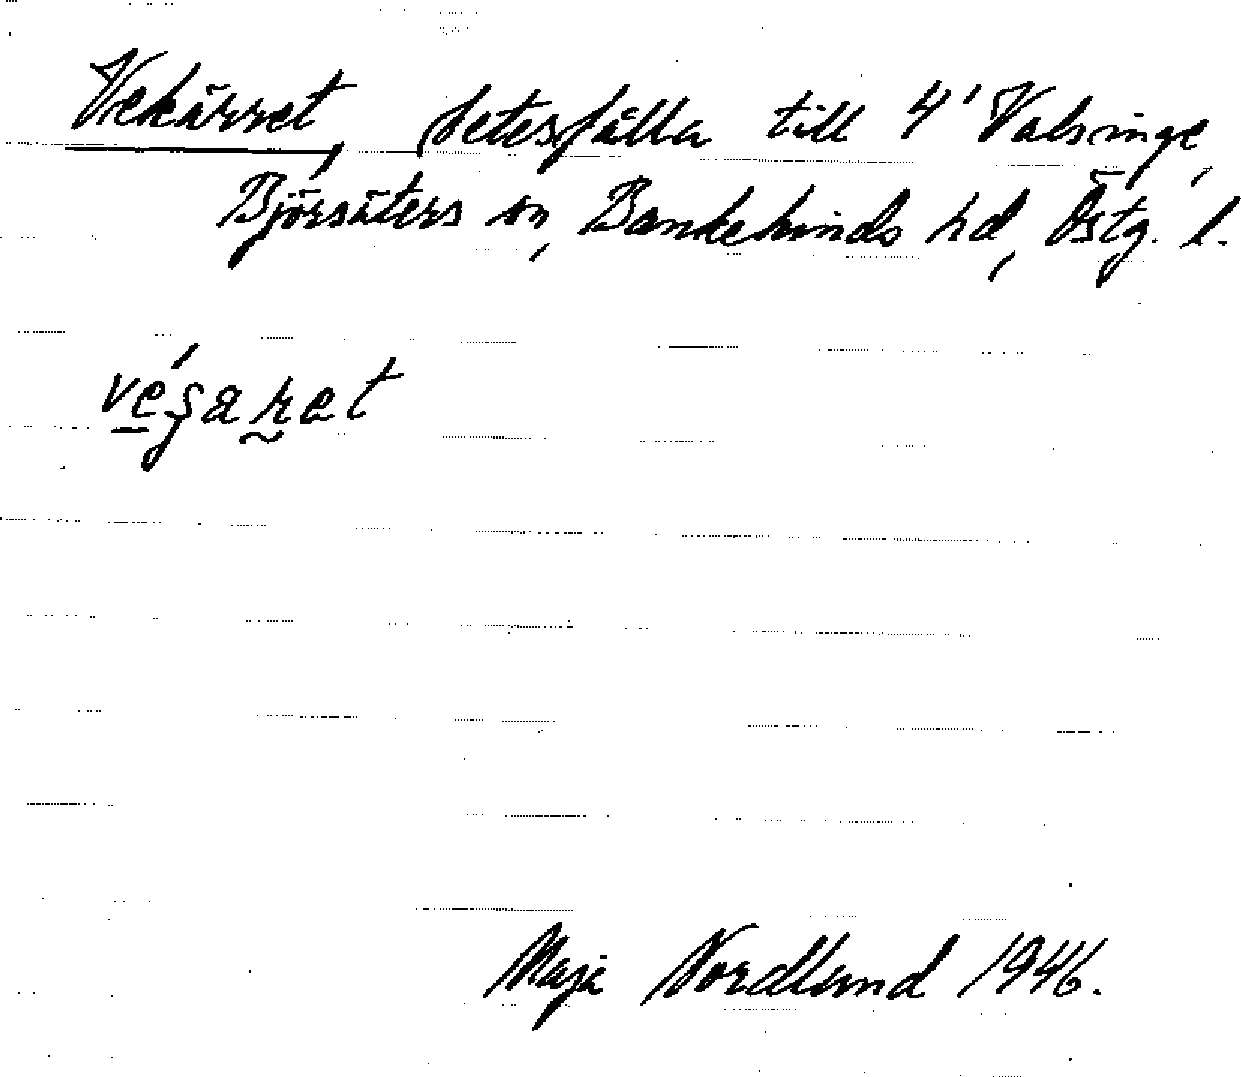 Vekärret, betesfålla till 4' Valsinge,
Björsäters sn, Bankekinds hd, Östg. l.
Maja Nordlund 1946.